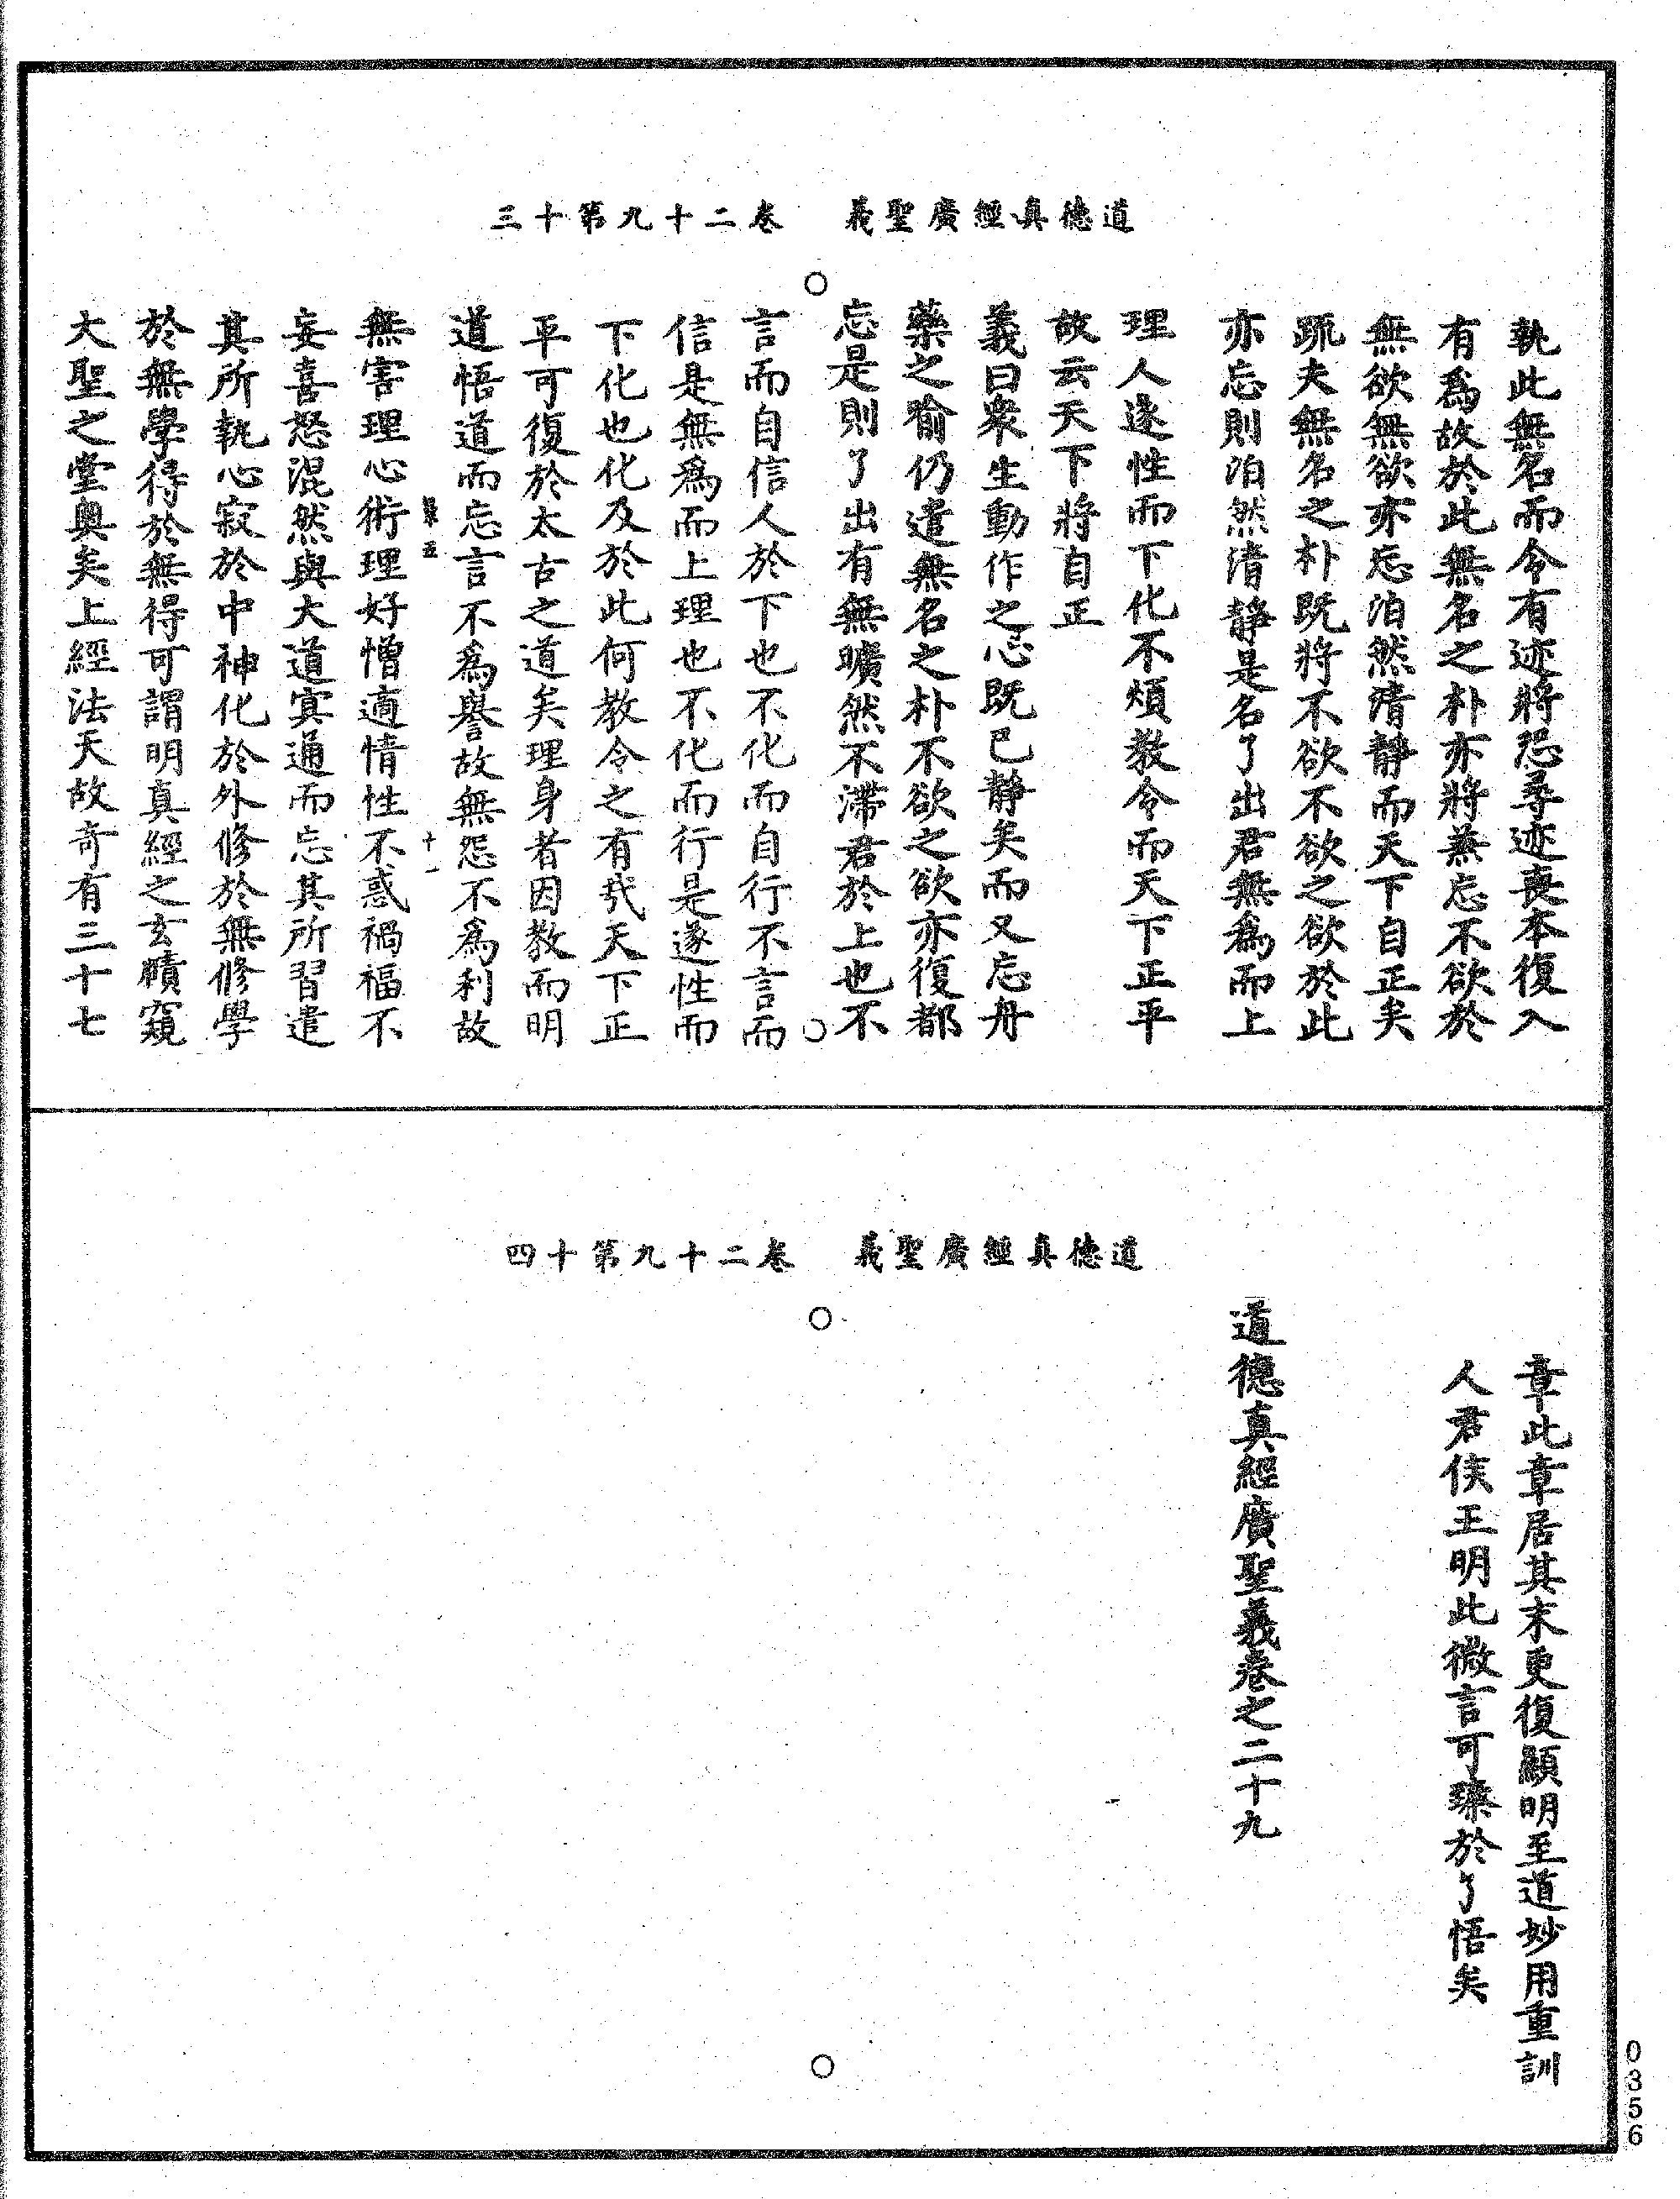 道德真經廣聖義　卷二十九第十三
執此無名而令有迹將恐尋迹喪本復入
有爲故於此無名之朴亦將兼忘不欲於
無欲無欲亦忘泊然清靜而天下自正矣
疏夫無名之朴既將不欲不欲之欲於此
亦忘則泊然清靜是名了出君無爲而上
理人遂性而下化不煩教令而天下正平
故云天下將自正
義曰衆生動作之心既已靜矣而又忘舟
藥之喻仍遣無名之朴不欲之欲亦復都
忘是則了出有無曠然不滯君於上也不
言而自信人於下也不化而自行不言而
信是無爲而上理也不化而行是遂性而
下化也化及於此何教令之有哉天下正
平可復於太古之道矣理身者因教而明
道悟道而忘言不爲譽故無怨不爲利故
十一
無害理心術理好憎適情性不惑禍福不
妄喜怒混然與大道冥通而忘其所習遣
其所執心寂於中神化於外修於無修學
於無學得於無得可謂明真經之玄賾窺
大聖之堂奥矣上經法天故奇有三十七
道德真經廣聖義　卷二十九第十四
章此章居其末更復顯明至道妙用重訓
人君侯王明此微言可臻於了悟矣
道德真經廣聖義卷之二十九
0356